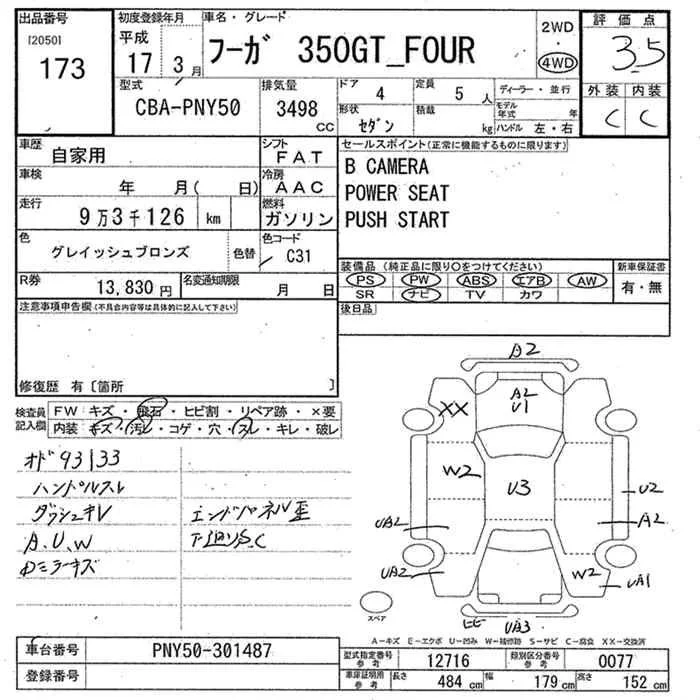 出品番号
[2050]
173
初度登録年月
平成
17 3月
車名・グレード
フーガ 350GT_FOUR
2WD
4WD
評価点
3.5
外装 内装
C C
型式
CBA-PNY50
排気量
3498
CC
ドア 4
形状 セダン
定員 5 人
積載 kg
ディーラー・並行
モデル年式 年
ハンドル 左・右
車歴 自家用
シフト FAT
車検 年 月( 日)
冷房 AAC
走行 9万3千126 km
燃料 ガソリン
色 グレイッシュブロンズ 色替
色コード C31
R券 13,830 円
名変通知期限 月 日
セールスポイント(正常に機能するものに限ります)
B CAMERA
POWER SEAT
PUSH START
装備品 (純正品に限り○をつけてください)
PS PW ABS エアB AW
SR ナビ TV カワ
新車保証書
有・無
後日品
注意事項申告欄(不具合内容等は具体的に記入して下さい)
修復歴 有〔箇所 〕
検査員記入欄
FW キズ・飛石・ヒビ割・リペア跡・×要
内装 キズ・汚レ・コゲ・穴・スレ・キレ・破レ
オド 93133
ハンドルスレ
ダッシュキレ
A.U.W
Dミラーキズ
エンドパネル歪
下廻りS.C
A2
A2
U1
XX
W2
U3
U2
A2
UA2
UA2
W2
UA1
UA3
スペア
A-キズ E-エクボ U-凹み W-補修跡 S-サビ C-腐食 XX-交換済
車台番号 PNY50-301487
登録番号
型式指定番号 参考 12716
類別区分番号 参考 0077
車庫証明用 参考 長さ 484 cm 幅 179 cm 高さ 152 cm